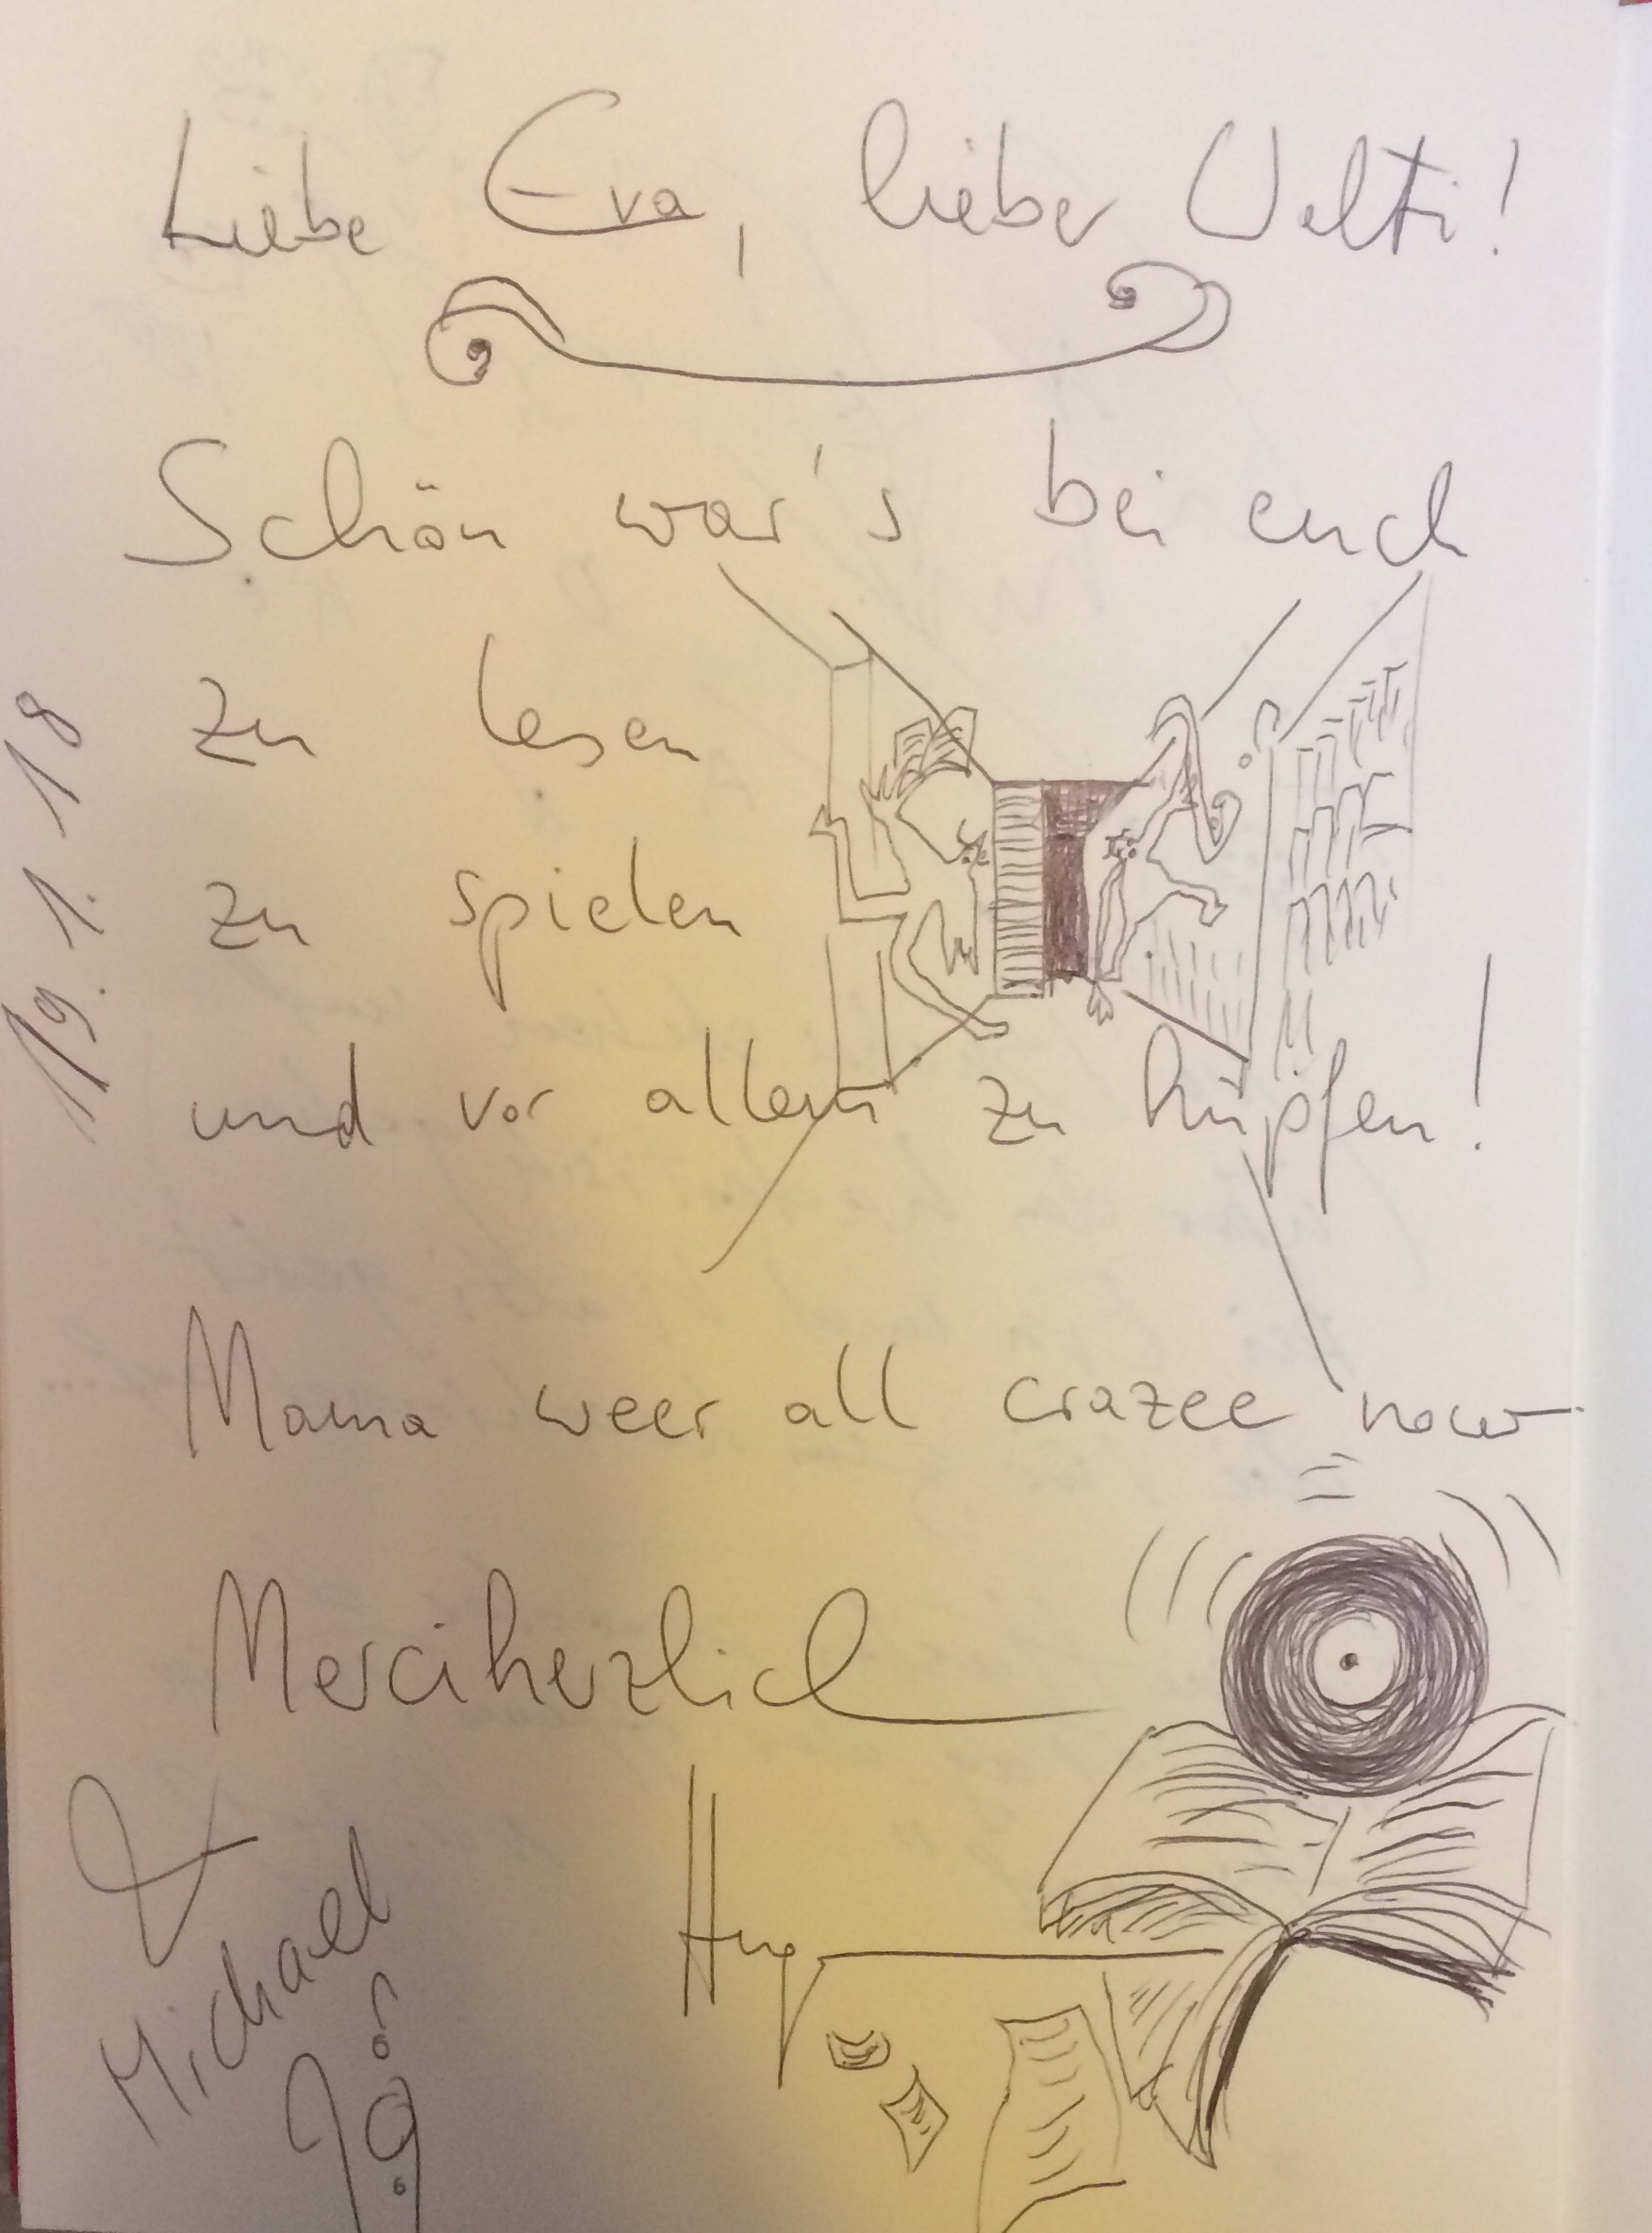 Liebe Eva, lieber Uelti!
Schön war's bei euch
zu lesen
zu spielen
und vor allem zu hüpfen!
Mama weer all crazee now
Merciherzlich
Michael
19.1.18